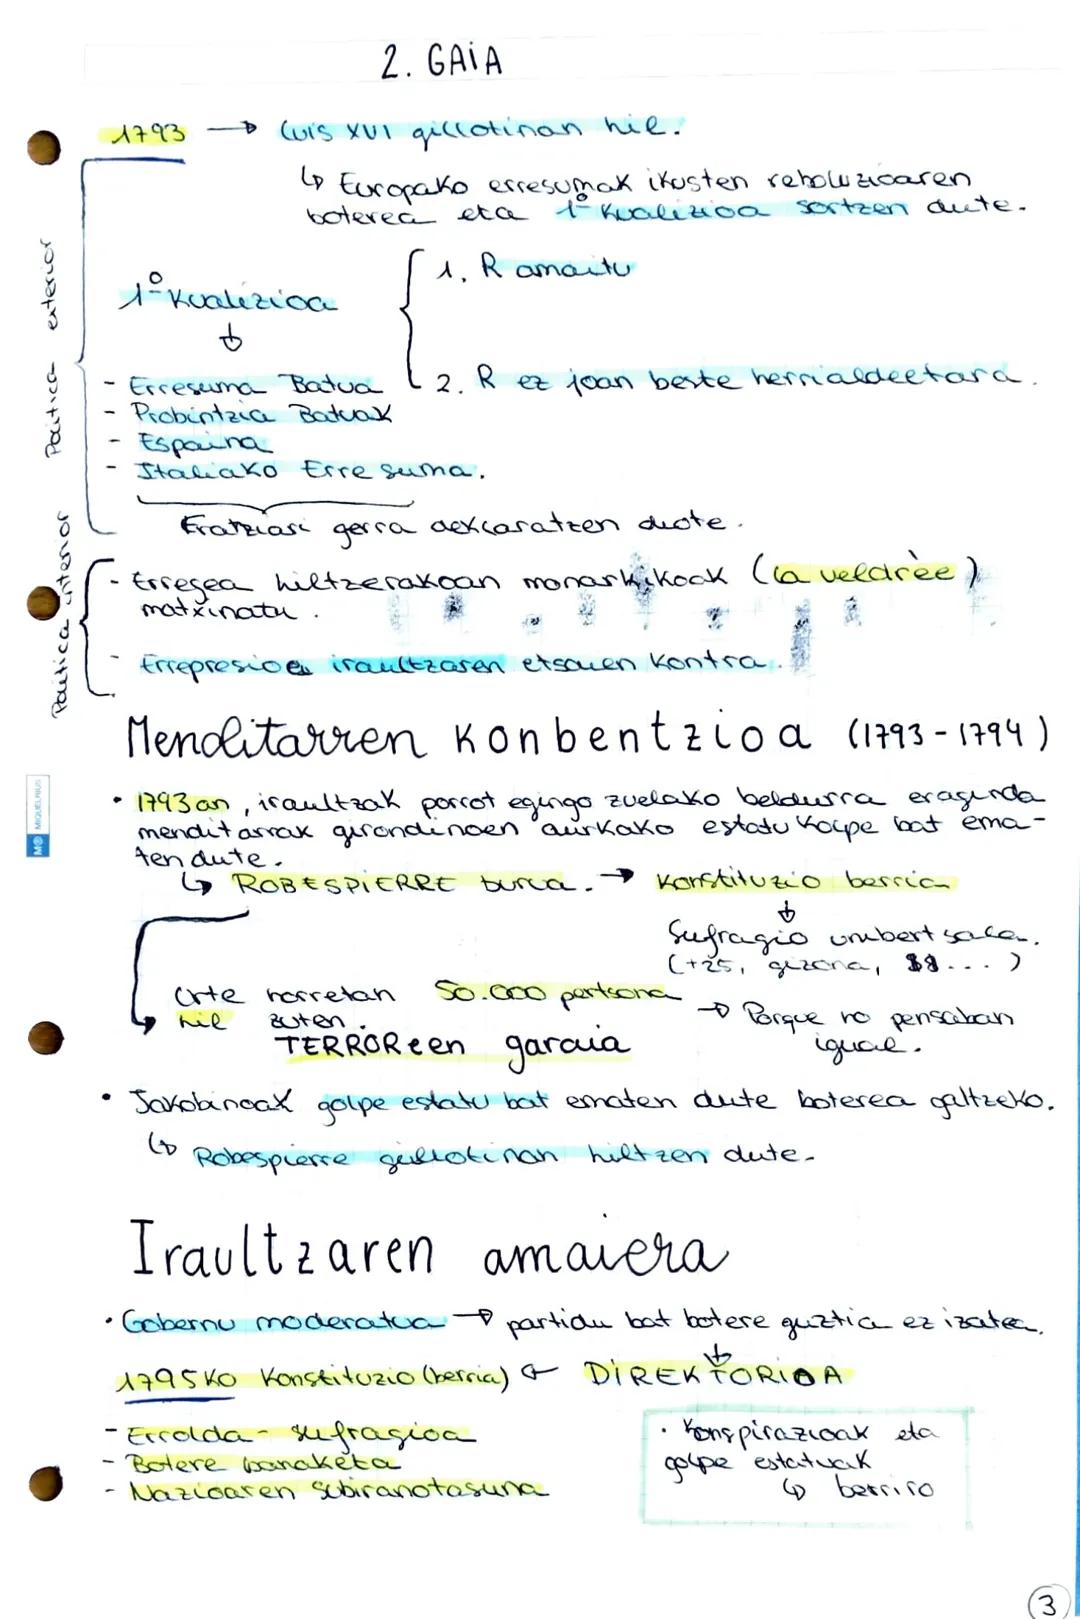 2. GAIA
1793 → Luis XVI gillotinan hil.
↳ Europako erresumak ikusten reboluzioaren
boterea eta 1º Kualizioa sortzen dute.
1º Kualizioa
↓
1. R amaitu
2. R ez joan beste herrialdeetara.
- Erresuma Batua
- Probintzia Batuak
- Espaina
- Italiako Erresuma.
Frantziari gerra deklaratzen diote.
Politica exterior
- Erregea hiltzerakoan monarkikoak (la veldrèe)
matxinatu.
- Errepresioa iraultzaren etsaien kontra.
Politica interior
Menditarren Konbentzioa (1793-1794)
• 1793an, iraultzak porrot egingo zuelako beldurra eraginda
menditarrak girondinoen aurkako estatu kolpe bat ema-
ten dute.
↳ ROBESPIERRE burua. → Konstituzio berria
↓
Sufragio unibertsala.
(+25, gizona, $$...)
Urte horretan 50.000 pertsona
hil zuten.
→ Porque no pensaban
igual.
TERROReen garaia
• Jakobinoak golpe estatu bat ematen dute boterea galtzeko.
↳ Robespierre guillotinan hiltzen dute.
Iraultzaren amaiera
• Gobernu moderatua → partidu bat botere guztia ez izatea.
↓
1795KO Konstituzio (berria) ← DIREKTORIOA
- Errolda-sufragioa
- Botere banaketa
- Nazioaren subiranotasuna
• Konspirazioak eta
golpe estatuak
↳ berriro
MIQUELRIUS
3